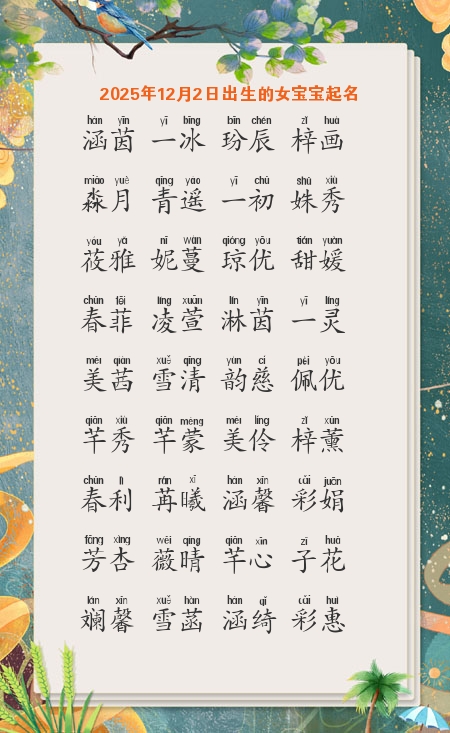 2025年12月2日出生的女宝宝起名
hàn yīn yī bīng bīn chén zǐ huà
涵茵 一冰 玢辰 梓画
miǎo yuè qīng yáo yī chū shū xiù
淼月 青遥 一初 姝秀
yóu yǎ nī wàn qióng yōu tián yuàn
莜雅 妮蔓 琼优 甜媛
chūn fēi líng xuān lín yīn yī líng
春菲 凌萱 淋茵 一灵
měi qiàn xuě qīng yùn cí pèi yōu
美茜 雪清 韵慈 佩优
qiān xiù qiān méng měi líng zǐ xūn
芊秀 芊蒙 美伶 梓薰
chūn lì rǎn xī hàn xīn cǎi juān
春利 苒曦 涵馨 彩娟
fāng xìng wēi qíng qiān xīn zǐ huā
芳杏 薇晴 芊心 子花
lán xīn xuě hàn hàn qǐ cǎi huì
斓馨 雪菡 涵绮 彩惠